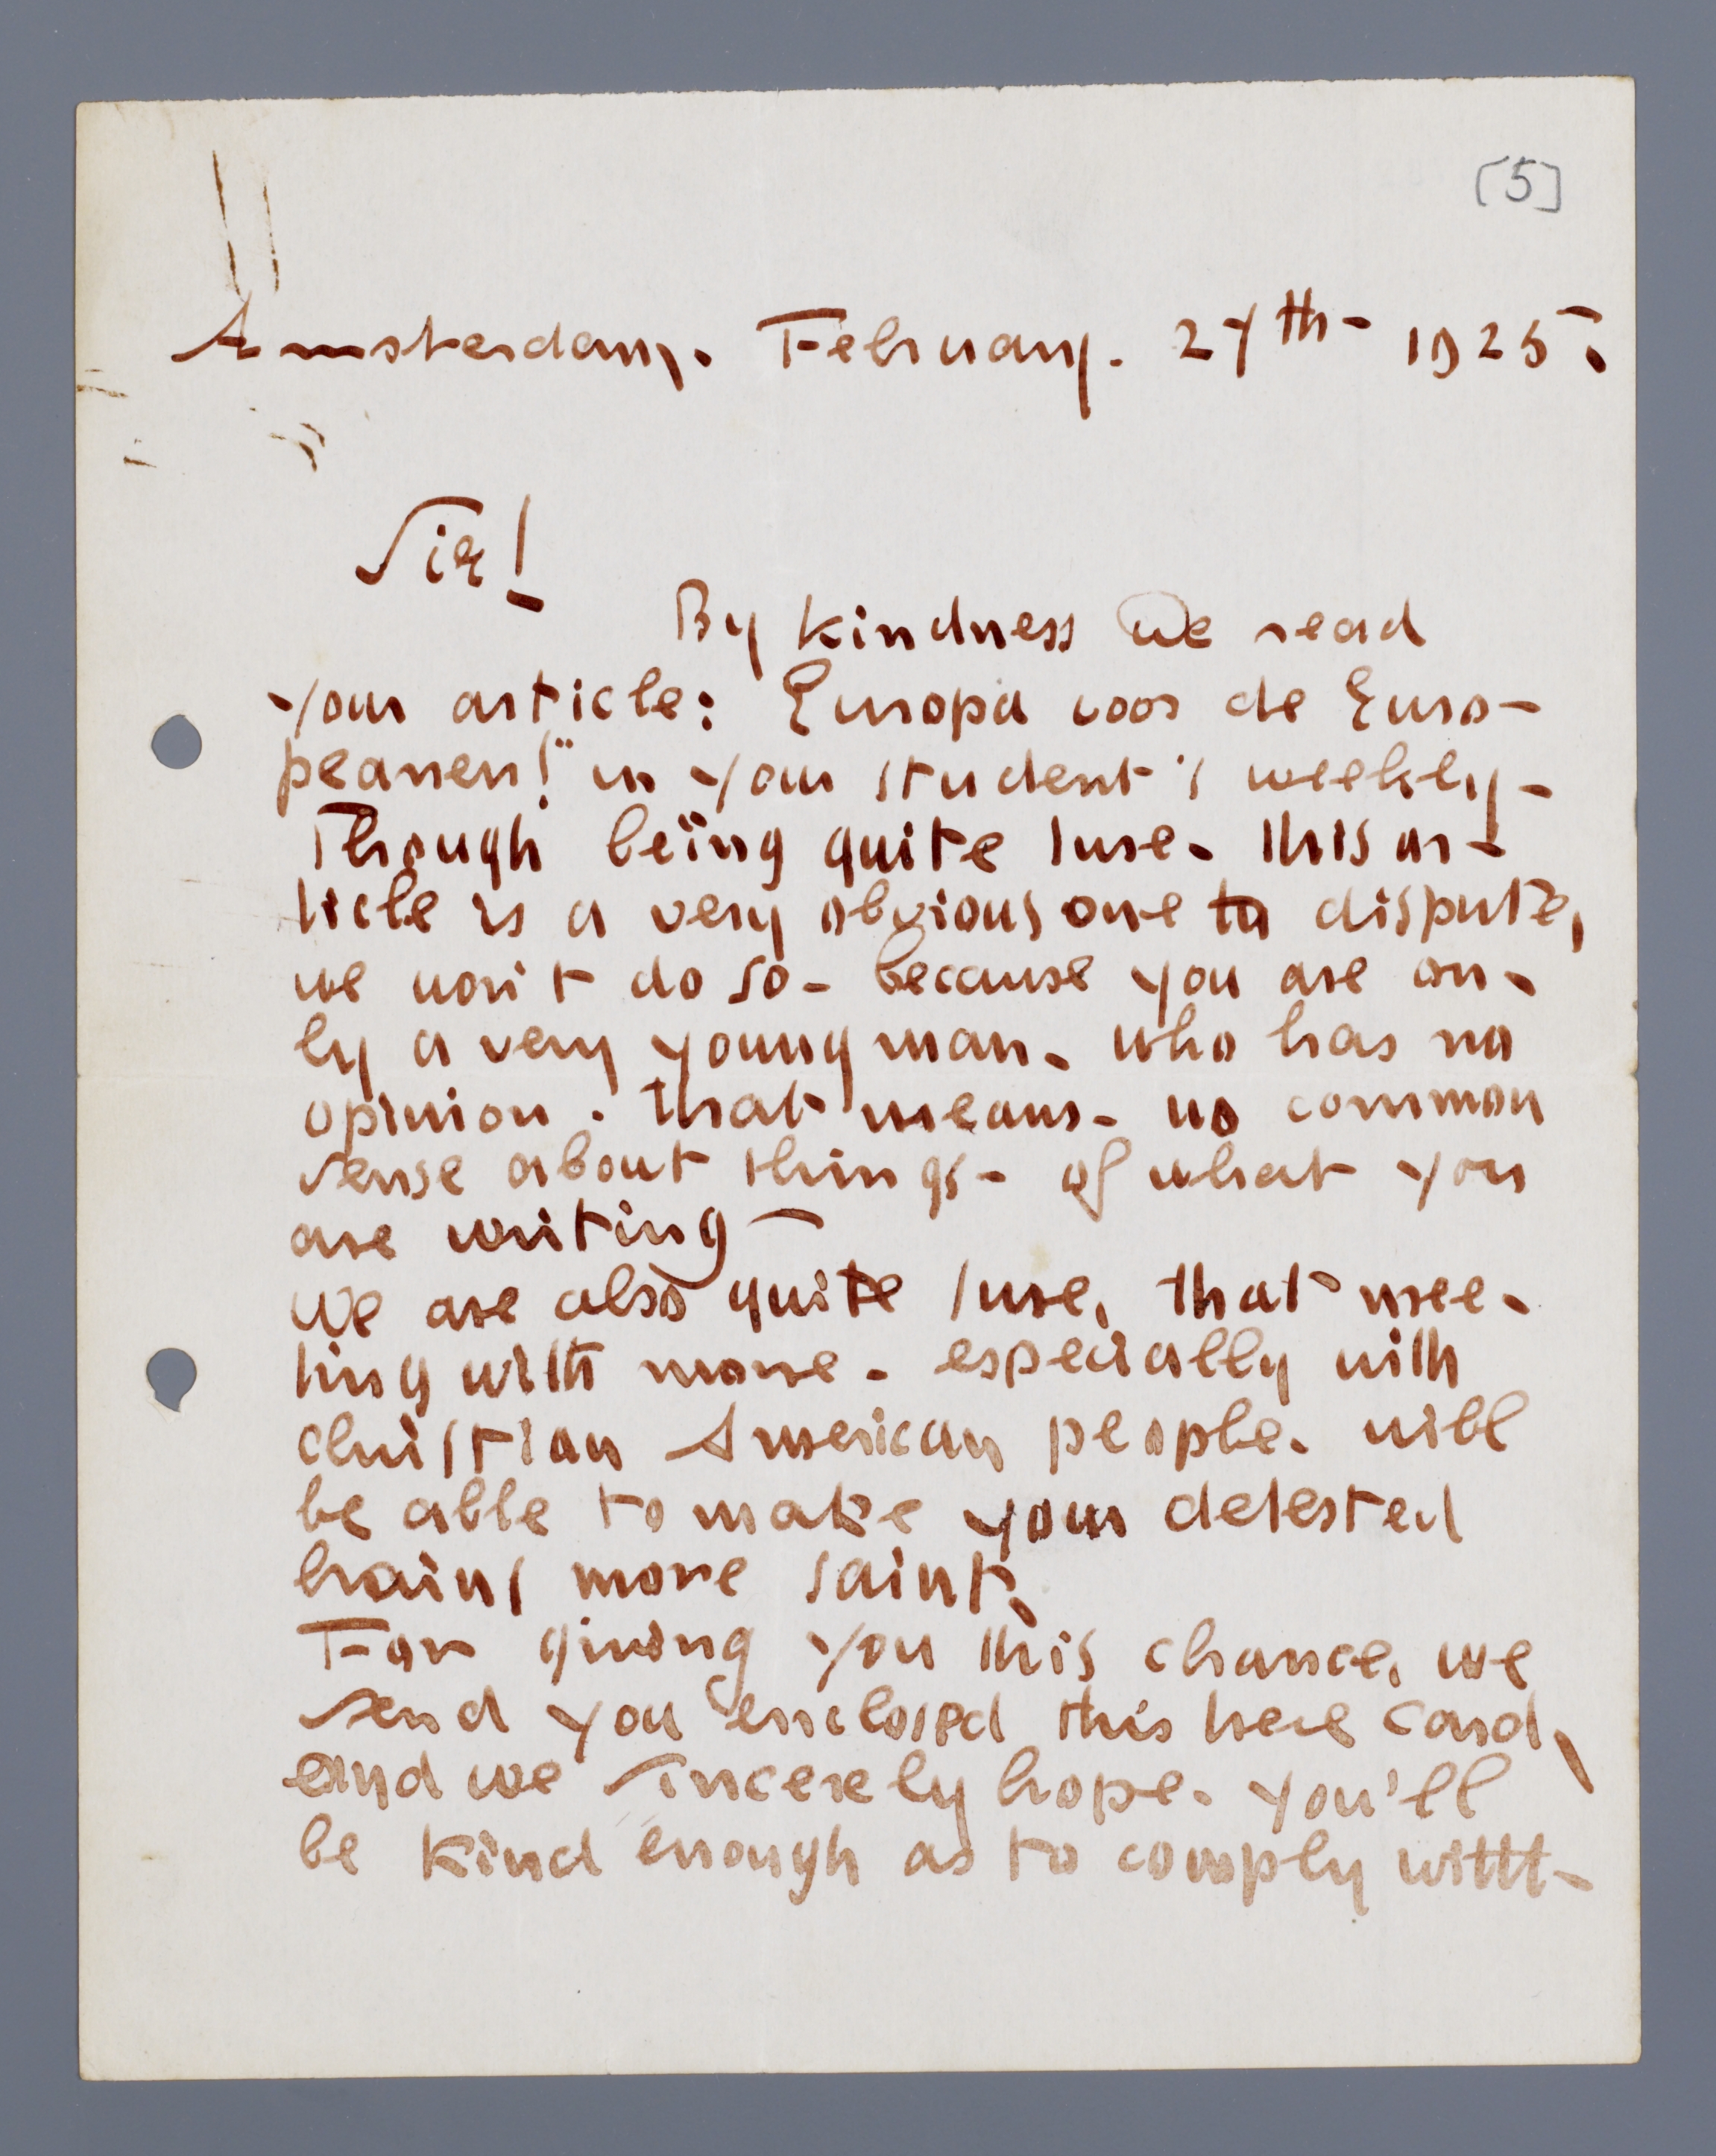 [5]
Amsterdam, February. 27th- 1925.
Sir!
By kindness we read
your article: Europa voor de Euro-
peanen!" in your student's weekly-
Though beïing quite sure- this ar-
ticle is a very obvious one to dispute,
we won't do so- because you are on-
ly a very young man- who has no
opinion. that means- no common
sense about things- of what you
are writing-
We are also quite sure, that mee-
ting with more- especially with
christian American people- will
be able to make your detested
brains more saint.
For giving you this chance, we
send you enclosed this here card,
and we sincerely hope- you'll
be kind enough as to comply with-